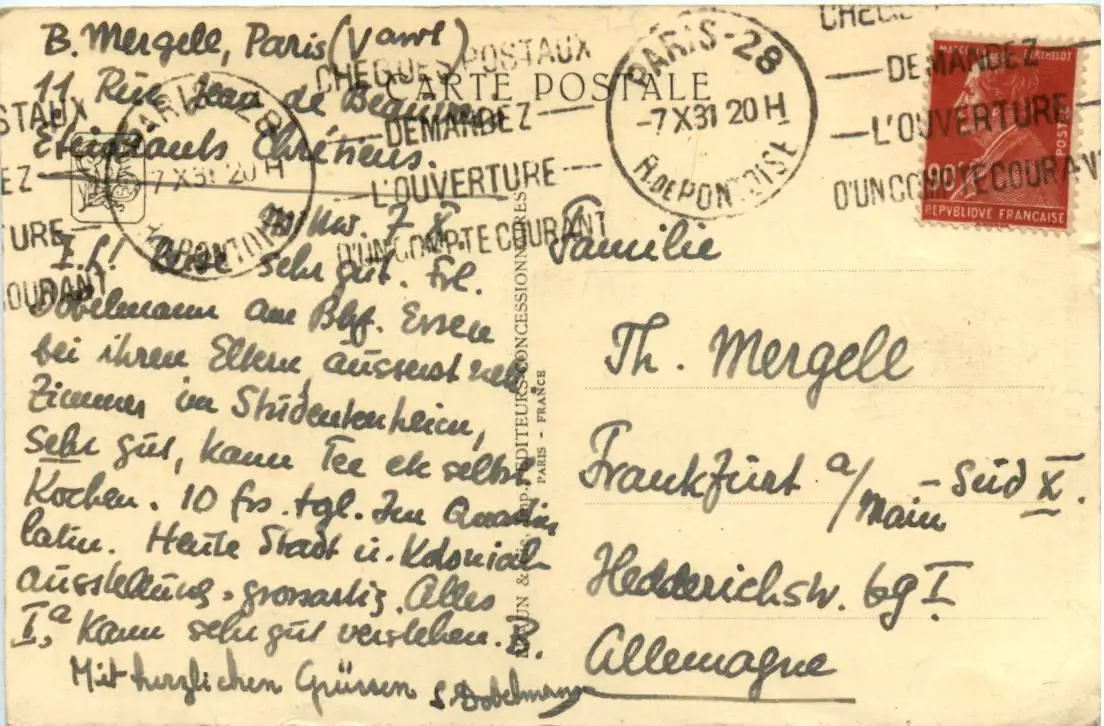 B. Mergell, Paris (Vanve)
11 Rue Jean de Beauvais
Etudiants Chrétiens.
Mittw. 7 X.
I. L! Reise sehr gut. Frl.
Dobelmann am Bhf. Essen
bei ihren Eltern äusserst nett.
Zimmer im Studentenheim,
sehr gut, kann Tee etc selbst
kochen. 10 frs. tgl. Im Quartier
latin. Heute Stadt u. Kolonial
ausstellung, grossartig. Alles
Ia, kann sehr gut verstehen. B.
Mit herzlichen Grüssen S. Dobelmann
CARTE POSTALE
BRAUN & Cie, Imp. EDITEURS-CONCESSIONNAIRES
PARIS - FRANCE
Familie
Th. Mergell
Frankfurt a/Main - Süd X.
Hedderichstr. 69 I
Allemagne
PARIS-28
-7 X 31 20 H
R. DE PONTOISE
CHEQUES POSTAUX
DEMANDEZ
L'OUVERTURE
D'UN COMPTE COURANT
PARIS-28
7 X 31 20 H
R. DE PONTOISE
STAUX
EZ
TURE
COURANT
CHEQUES
DEMANDEZ
L'OUVERTURE
D'UN COMPTE COURANT
BERTHELOT
POSTES
90c
REPVBLIQVE FRANÇAISE